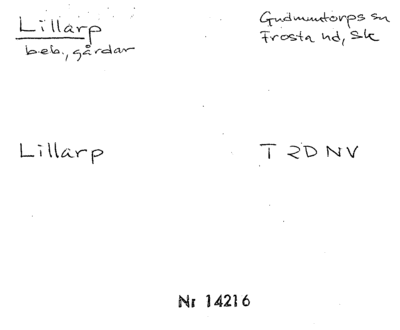 Lillarp
beb., gårdar
Gudmuntorps sn
Frosta hd, Sk
Lillarp
T 2D NV
Nr 14216